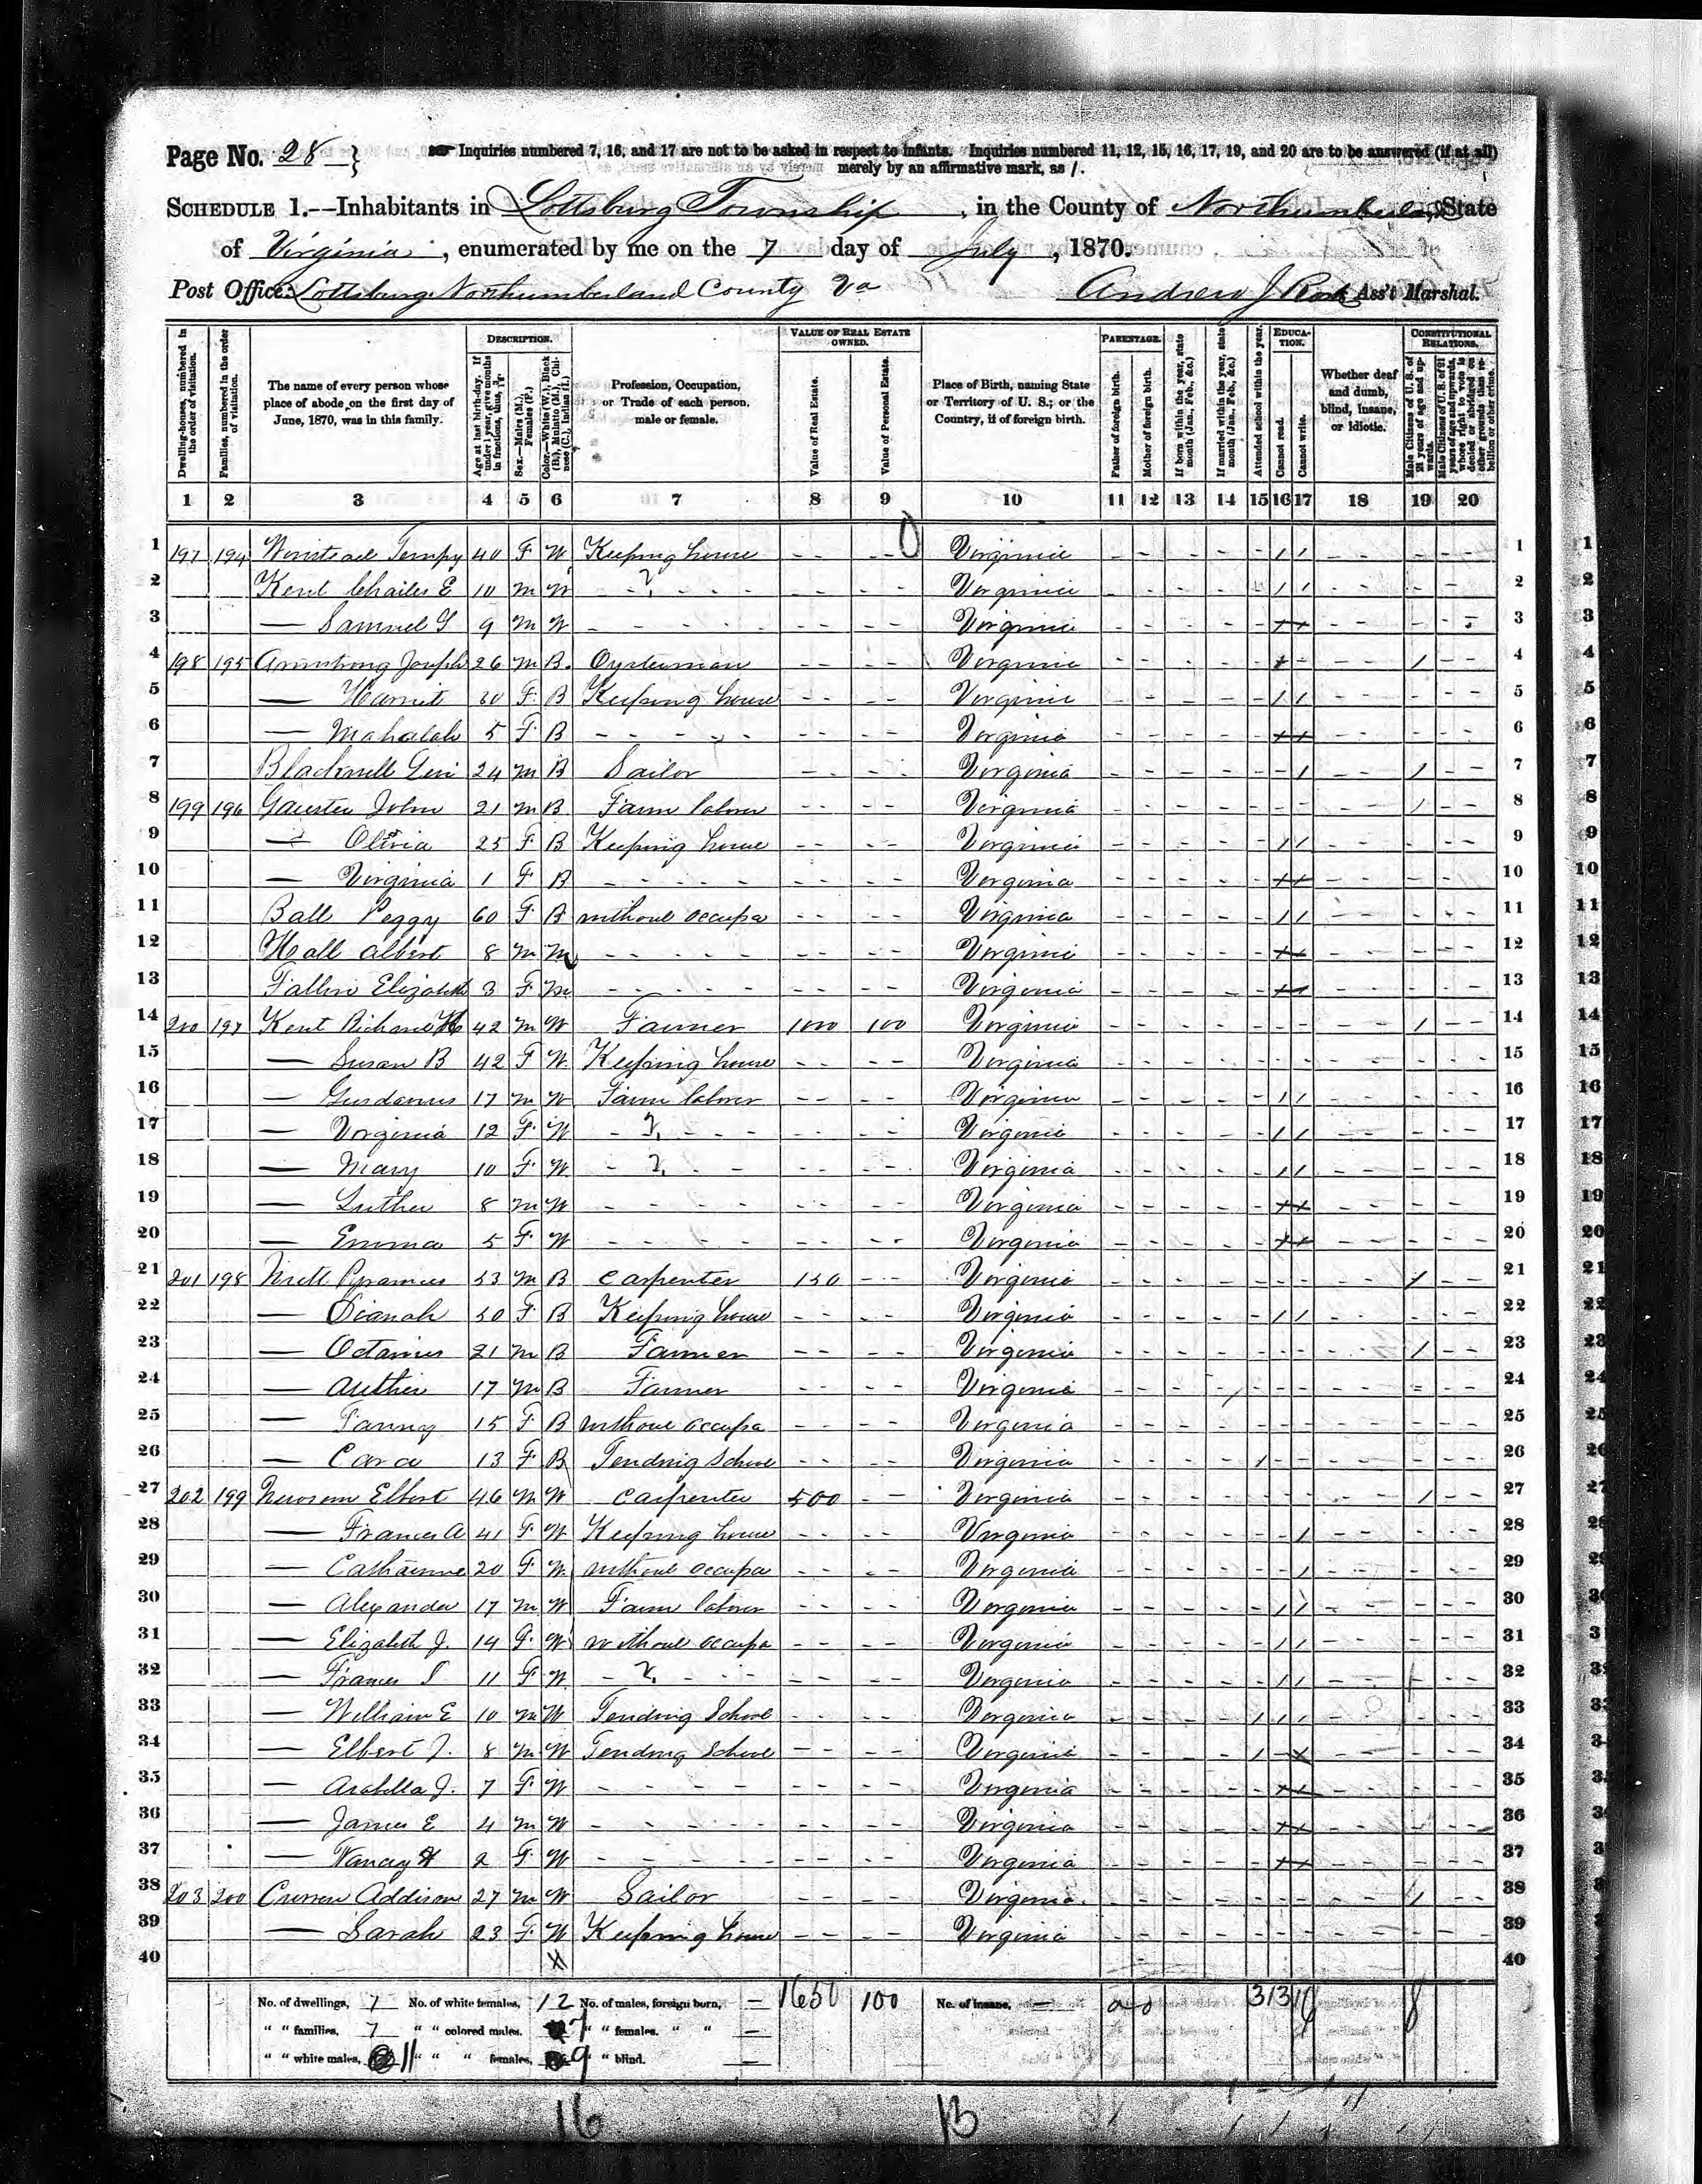 Page No. 28 } Inquiries numbered 7, 16, and 17 are not to be asked in respect to infants. Inquiries numbered 11, 12, 15, 16, 17, 19, and 20 are to be answered (if at all)
merely by an affirmative mark, as /.
SCHEDULE 1.—Inhabitants in Lottsburg Township, in the County of Northumberland, State
of Virginia, enumerated by me on the 7 day of July, 1870.
Post Office: Lottsburg Northumberland County Va Andrew J Ass't Marshal.
Dwelling-houses, numbered in the order of visitation.
Families, numbered in the order of visitation.
The name of every person whose place of abode on the first day of June, 1870, was in this family.
DESCRIPTION.
Age at last birth-day. If under 1 year, give months in fractions, thus, 3/12.
Sex.—Males (M.), Females (F.)
Color.—White (W.), Black (B.), Mulatto (M.), Chinese (C.), Indian (I.)
Profession, Occupation, or Trade of each person, male or female.
VALUE OF REAL ESTATE OWNED.
Value of Real Estate.
Value of Personal Estate.
Place of Birth, naming State or Territory of U. S.; or the Country, if of foreign birth.
PARENTAGE.
Father of foreign birth.
Mother of foreign birth.
If born within the year, state month (Jan., Feb., &c.)
If married within the year, state month (Jan., Feb., &c.)
Attended school within the year.
EDUCATION.
Cannot read.
Cannot write.
Whether deaf and dumb, blind, insane, or idiotic.
CONSTITUTIONAL RELATIONS.
Male Citizens of U. S. of 21 years of age and upwards.
Male Citizens of U. S. of 21 years of age and upwards, whose right to vote is denied or abridged on other grounds than rebellion or other crime.
1 2 3 4 5 6 7 8 9 10 11 12 13 14 15 16 17 18 19 20
1 197 194 Tempy 40 F W Keeping house - - - - Virginia / / 1
2 Kent Charles E 10 M W Virginia / / 2
3 — Samuel 9 M W Virginia 3
4 198 195 Armstrong Joseph 26 M B Oysterman Virginia / 4
5 — Harriet 30 F B Keeping house Virginia / / 5
6 — Mahalah 5 F B Virginia 6
7 Blackwell Levi 24 M B Sailor Virginia / / 7
8 199 196 John 21 M B Farm labor Virginia / 8
9 — Olivia 25 F B Keeping house Virginia / / 9
10 — Virginia 1 F B Virginia 10
11 Ball Peggy 60 F B without occupa Virginia / / 11
12 Hall Albert 8 M M Virginia 12
13 Fallin Elizabeth 3 F M Virginia 13
14 200 197 Kent Richard H 42 M W Farmer 1000 100 Virginia / 14
15 — Susan B 42 F W Keeping house Virginia 15
16 — 17 M W Farm labor Virginia / / 16
17 — Virginia 12 F W Virginia / / 17
18 — Mary 10 F W Virginia / / 18
19 — Luther 8 M W Virginia 19
20 — Emma 5 F W Virginia 20
21 201 198 53 M B Carpenter 150 Virginia / 21
22 — Dianah 50 F B Keeping house Virginia / / 22
23 — Octavius 21 M B Farmer Virginia / 23
24 — 17 M B Farmer Virginia 24
25 — Fanny 15 F B without occupa Virginia 25
26 — Cara 13 F B Tending School Virginia / 26
27 202 199 Newsom Elbert 46 M W Carpenter 500 Virginia / 27
28 — Frances A 41 F W Keeping house Virginia / 28
29 — Catharine 20 F W without occupa Virginia / 29
30 — Alexander 17 M W Farm labor Virginia / / 30
31 — Elizabeth J. 14 F W without occupa Virginia / / 31
32 — Frances 11 F W Virginia / / 32
33 — William E 10 M W Tending School Virginia / / / 33
34 — Elbert J. 8 M W Tending School Virginia / 34
35 — Arabella J. 7 F W Virginia 35
36 — James E 4 M W Virginia 36
37 — Nancy 2 F W Virginia 37
38 203 200 Addison 27 M W Sailor Virginia / 38
39 — Sarah 23 F W Keeping house Virginia 39
40 40
No. of dwellings, 7 No. of white females, 12 No. of males, foreign born, — 1650 100 No. of insane, —
" " families, 7 " " colored males. 7 " " females. " " —
" " white males, 11 " " " females, 9 " " blind. —
16 13